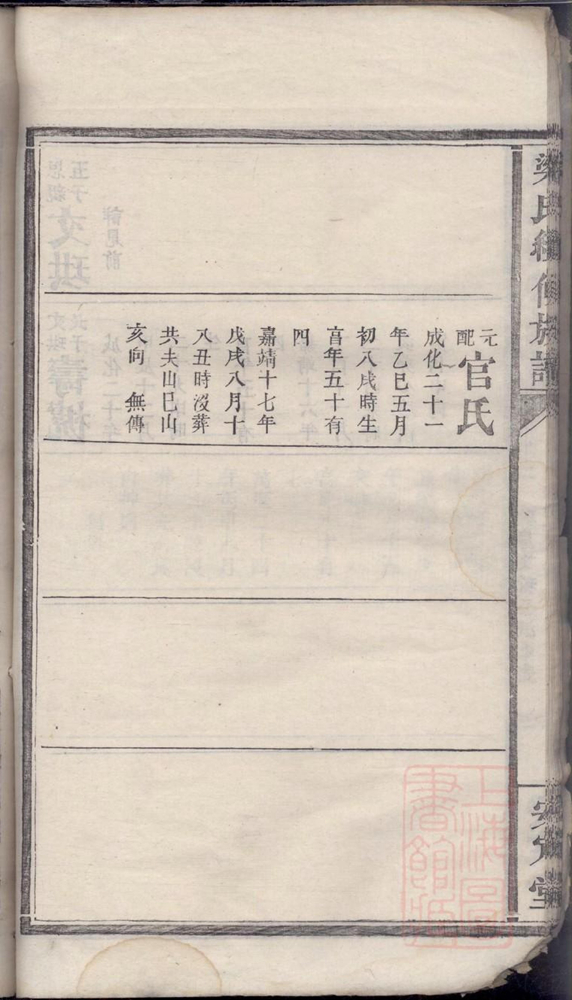 元配官氏
成化二十一
年乙巳五月
初八戌時生
享年五十有
四
嘉靖十七年
戊戌八月十
八丑時沒葬
共夫山巳山
亥向 無傳
上海圖書館藏